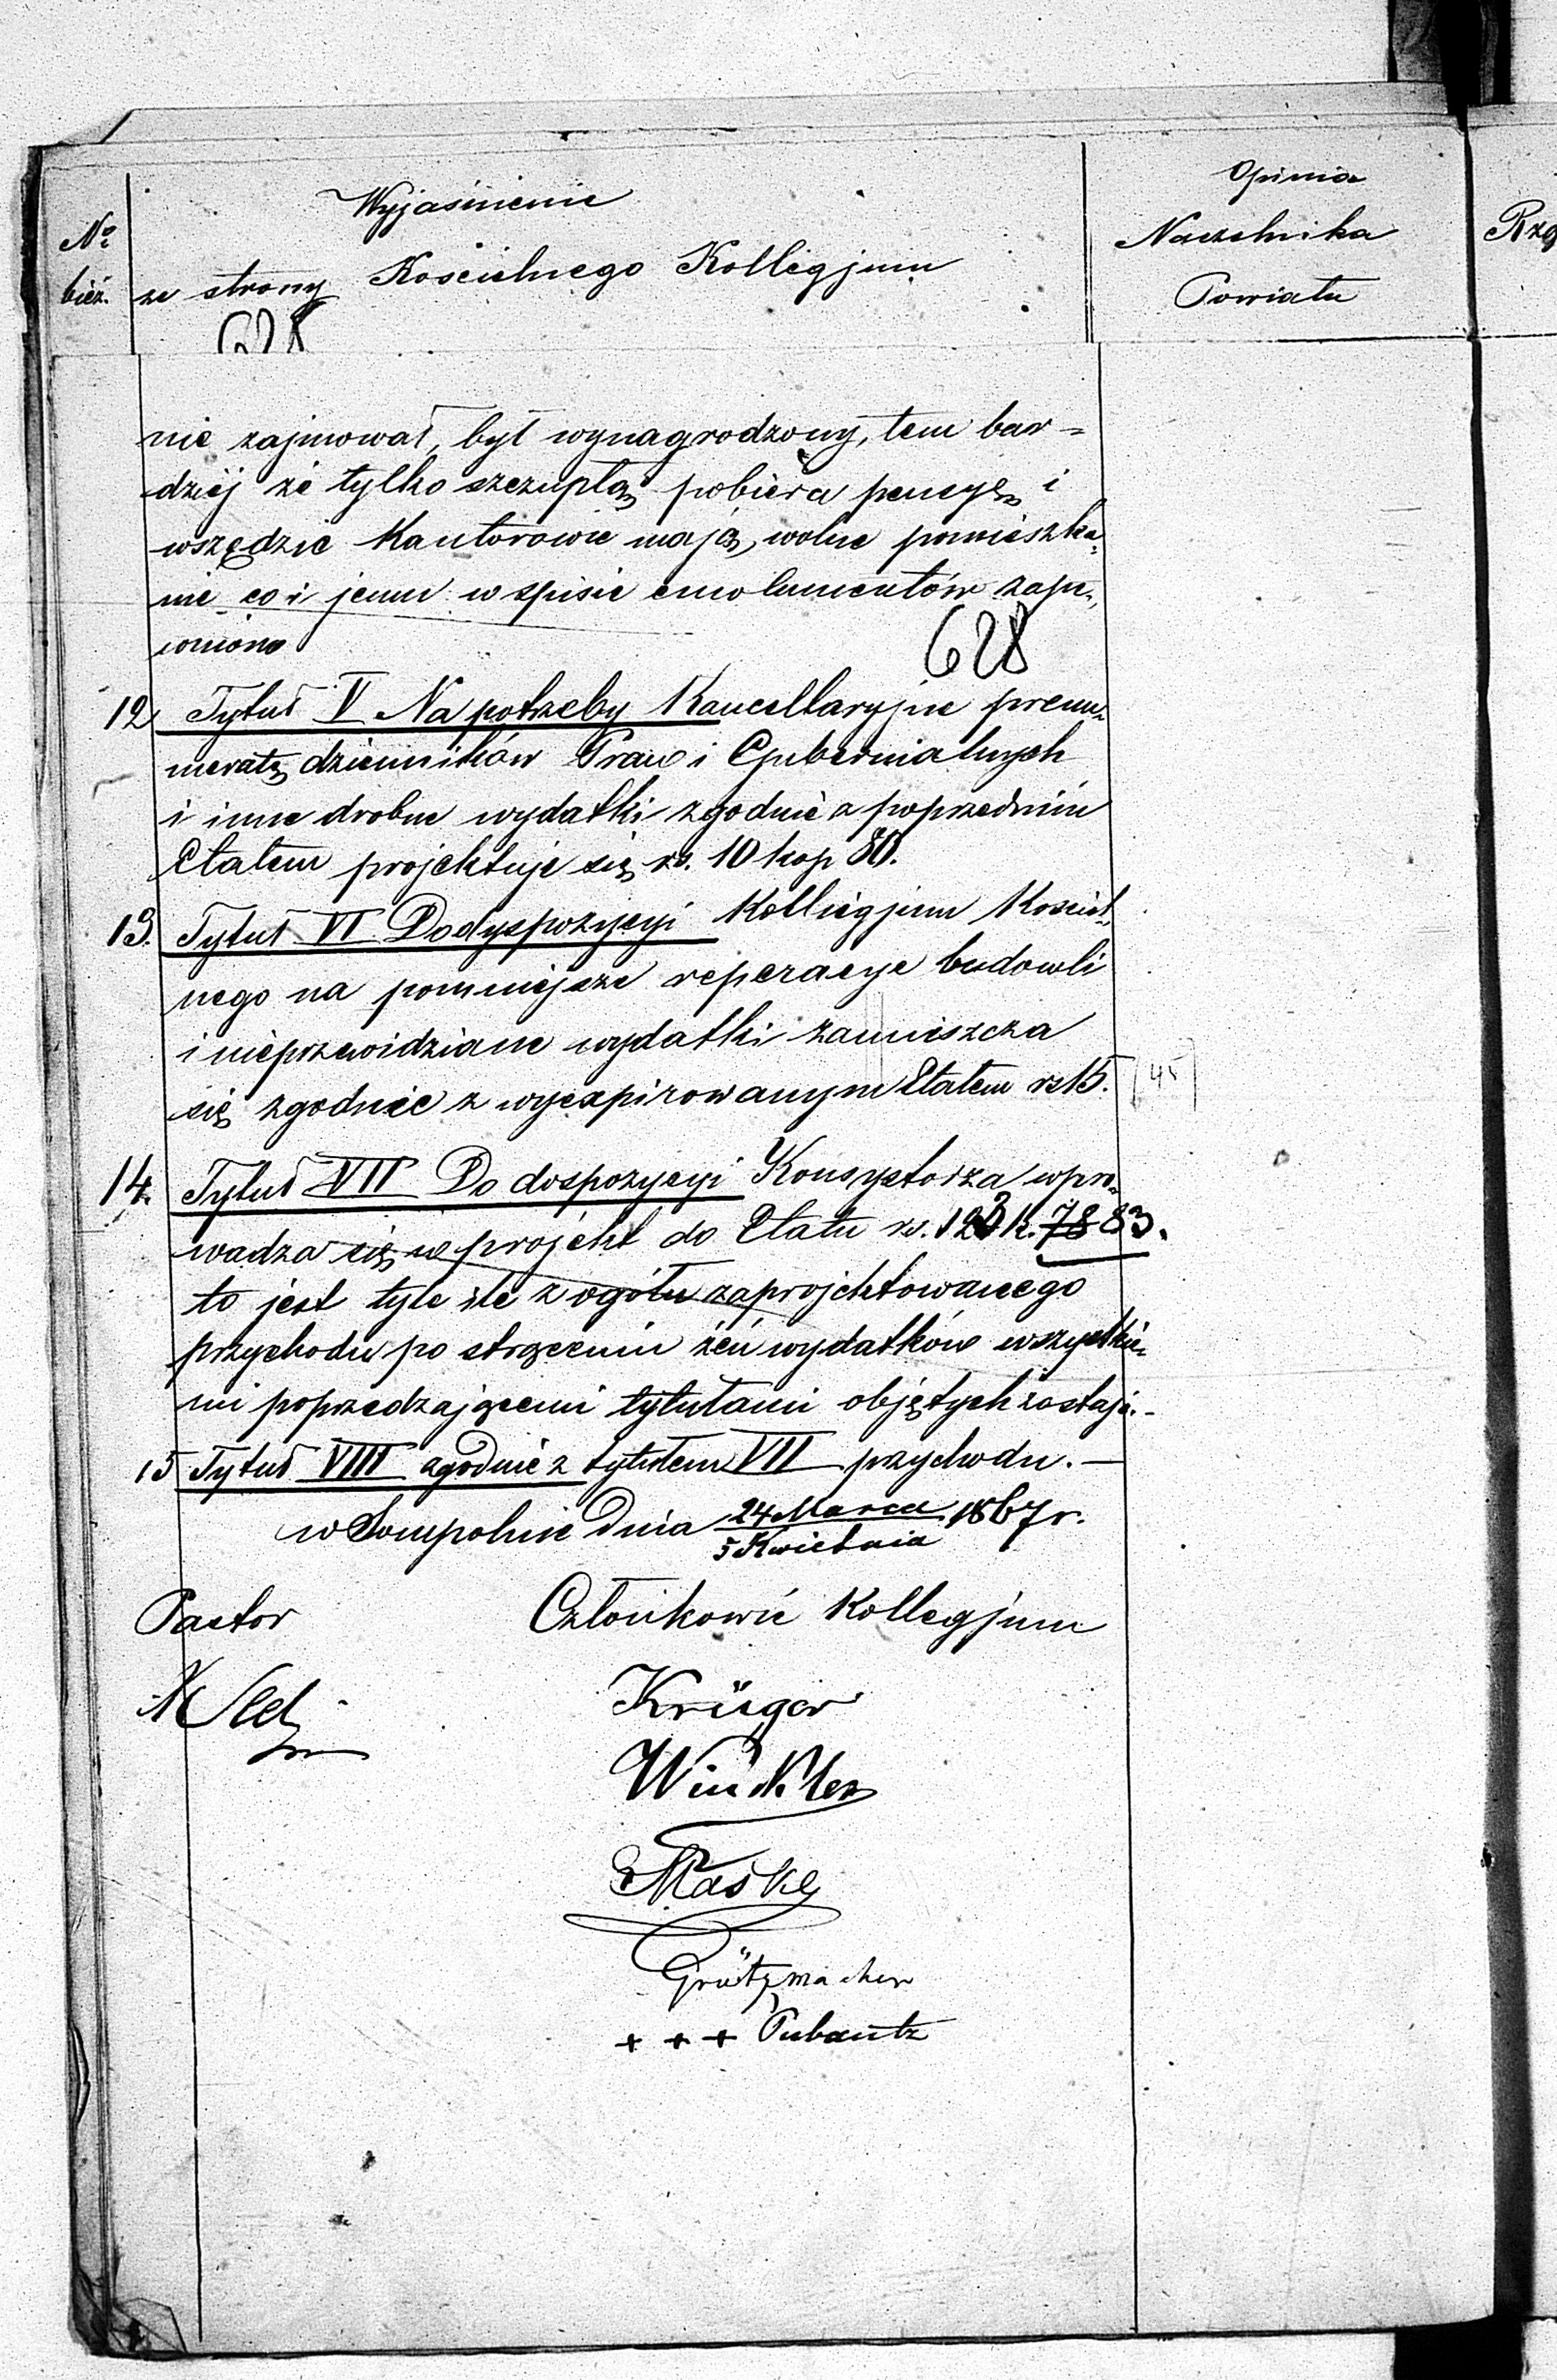 Wyjaśnienie
Opinia
№
bież.
ze strony Kościelnego Kollegjum
Naczelnika
Powiatu
628
nie zajmował, był wynagrodzony, tem bar=
dziéj że tylko szczupłą pobiera pensyę i
wszędzie Kantorowie mają wolne pomieszka„
nie co i jemu w spisie emolumentów zape„
wniono
628
12 Tytuł V Na potrzeby Kancellaryjne prenu„
meratę dzienników Praw i Gubernialnych
i inne drobne wydatki zgodnie z poprzednim
Etatem projektuje się rs. 10 kop 80.
13. Tytuł VI Do dyspozycyi Kollegjum Kościel„
nego na pomniejsze reperacye budowli
i nieprzewidziane wydatki zamieszcza
się zgodnie z wyexpirowanym Etatem rs 15.
14. Tytuł VII Do dospozycyi Konsystorza wpro„
wadza się w projekt do Etatu rs. 123 k. 78 83.
to jest tyle ile z ogółu zaprojektowanego
przychodu po strąceniu zeń wydatków wszystkie„
mi poprzedzającemi tytułami objętych zostaje.
15 Tytuł VIII zgodnie z tytułem VII przychodu. —
w Sompolnie dnia 24 Marca / 5 Kwietnia 1867 r.
Pastor
Członkowie Kollegjum
Krüger
Winckler
Maske
Grützmacher
+ + + Pubantz